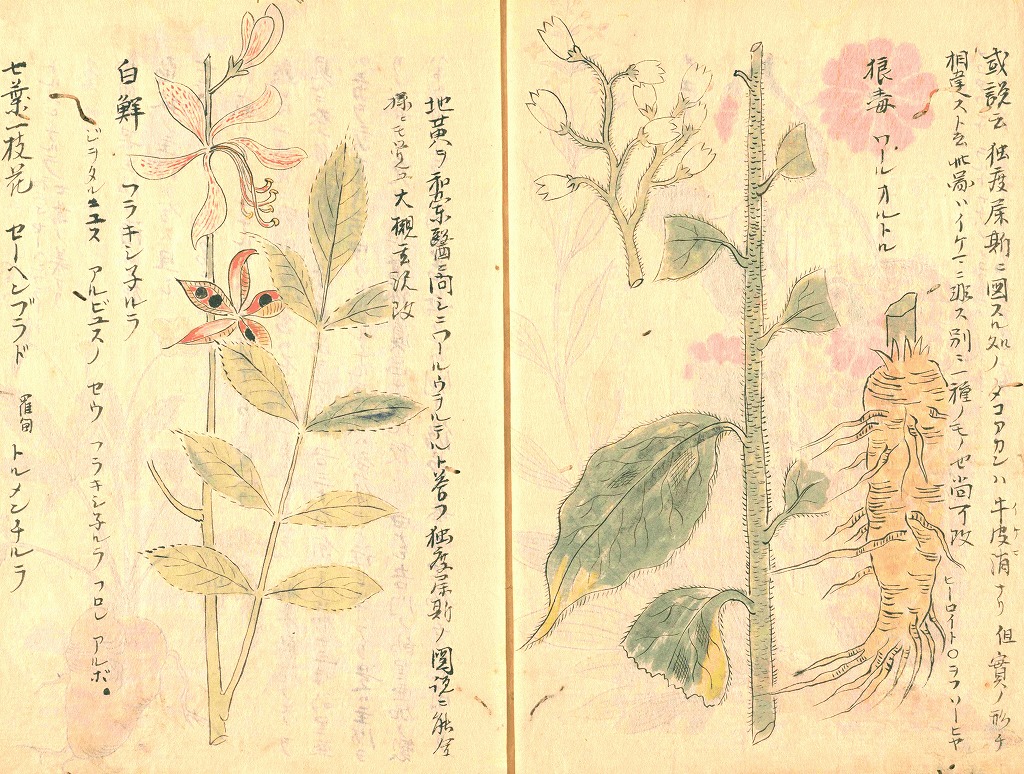 或説云独度屎斯ニ図スル処ノタコアカンハ牛皮消ナリ但實ノ形チ
イケマ
相違スト云此図ハイケマニ非ス別ニ一種ノモノセ尚可改
ヒーロイト○ラフリーヒヤ
狼毒 ワールカルトル
地黄ヲ和東醫ニ問シニワールウヲルテルト答フ独度屎斯ノ図説ニ能合
様ニモ覚ユ大槻玄沢改
白鮮 フラキシ子ルラ
アルビュスノセウフラキシ子ルラフロレアルボ
七葉一枝花 セーヘンブラド 羅甸 トルメンチルラ